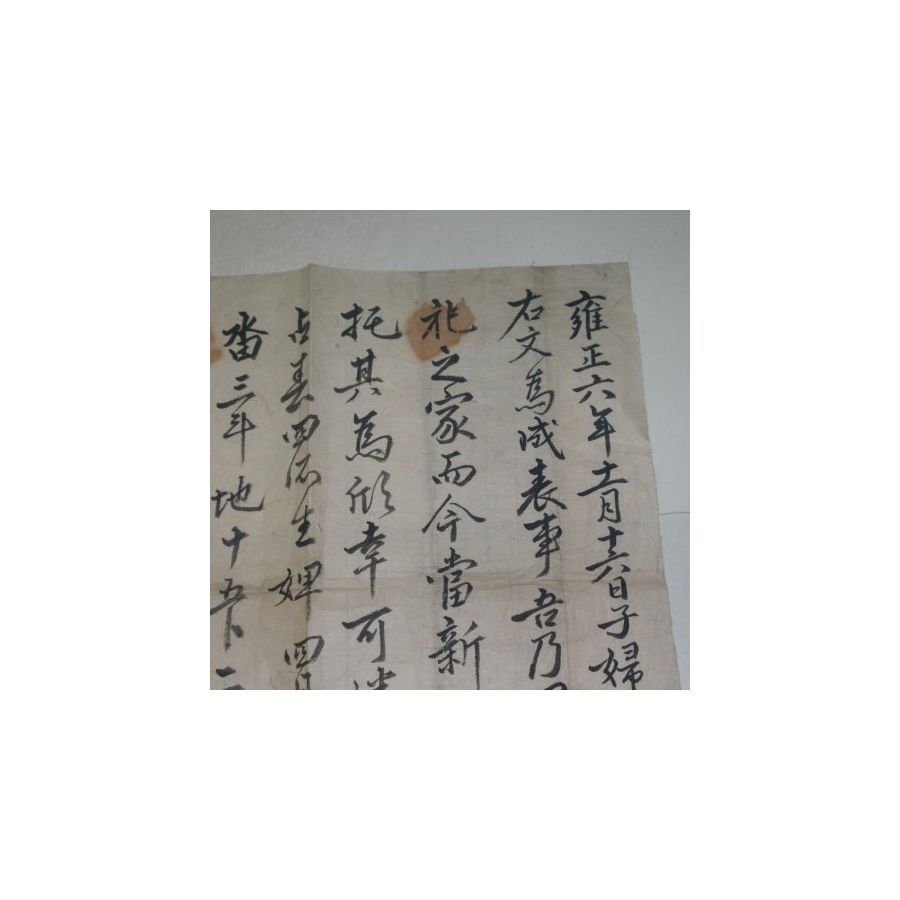 雍正六年十二月十六日子婦
右文為成表事吾乃
祀之家而今當新
托其為欣幸可
占春四所生婢四
畓三斗地十五卜二